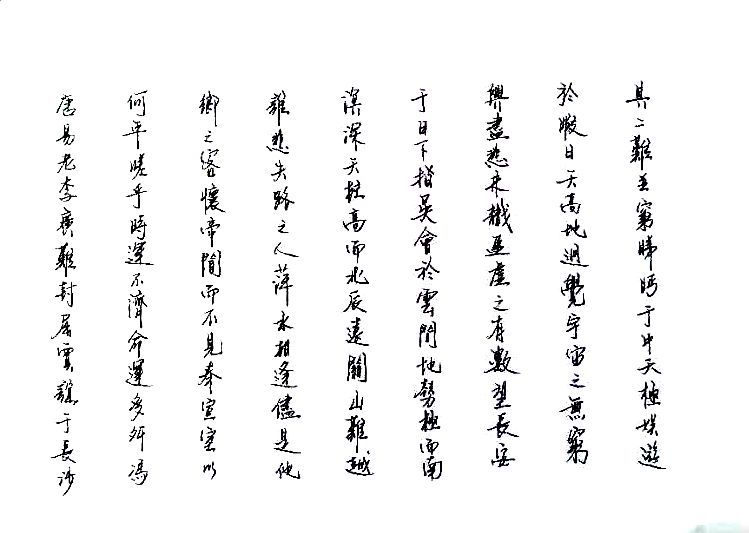 具二難並窮睇眄于中天極娱遊
於暇日天高地迥覺宇宙之無窮
興盡悲来識盈虚之有數望長安
于日下指吴會於雲間地勢極而南
溟深天柱高而北辰遠關山難越
誰悲失路之人萍水相逢儘是他
鄉之客懷帝閽而不見奉宣室以
何年嗟乎時運不濟命運多舛馮
唐易老李廣難封屈賈誼于長沙